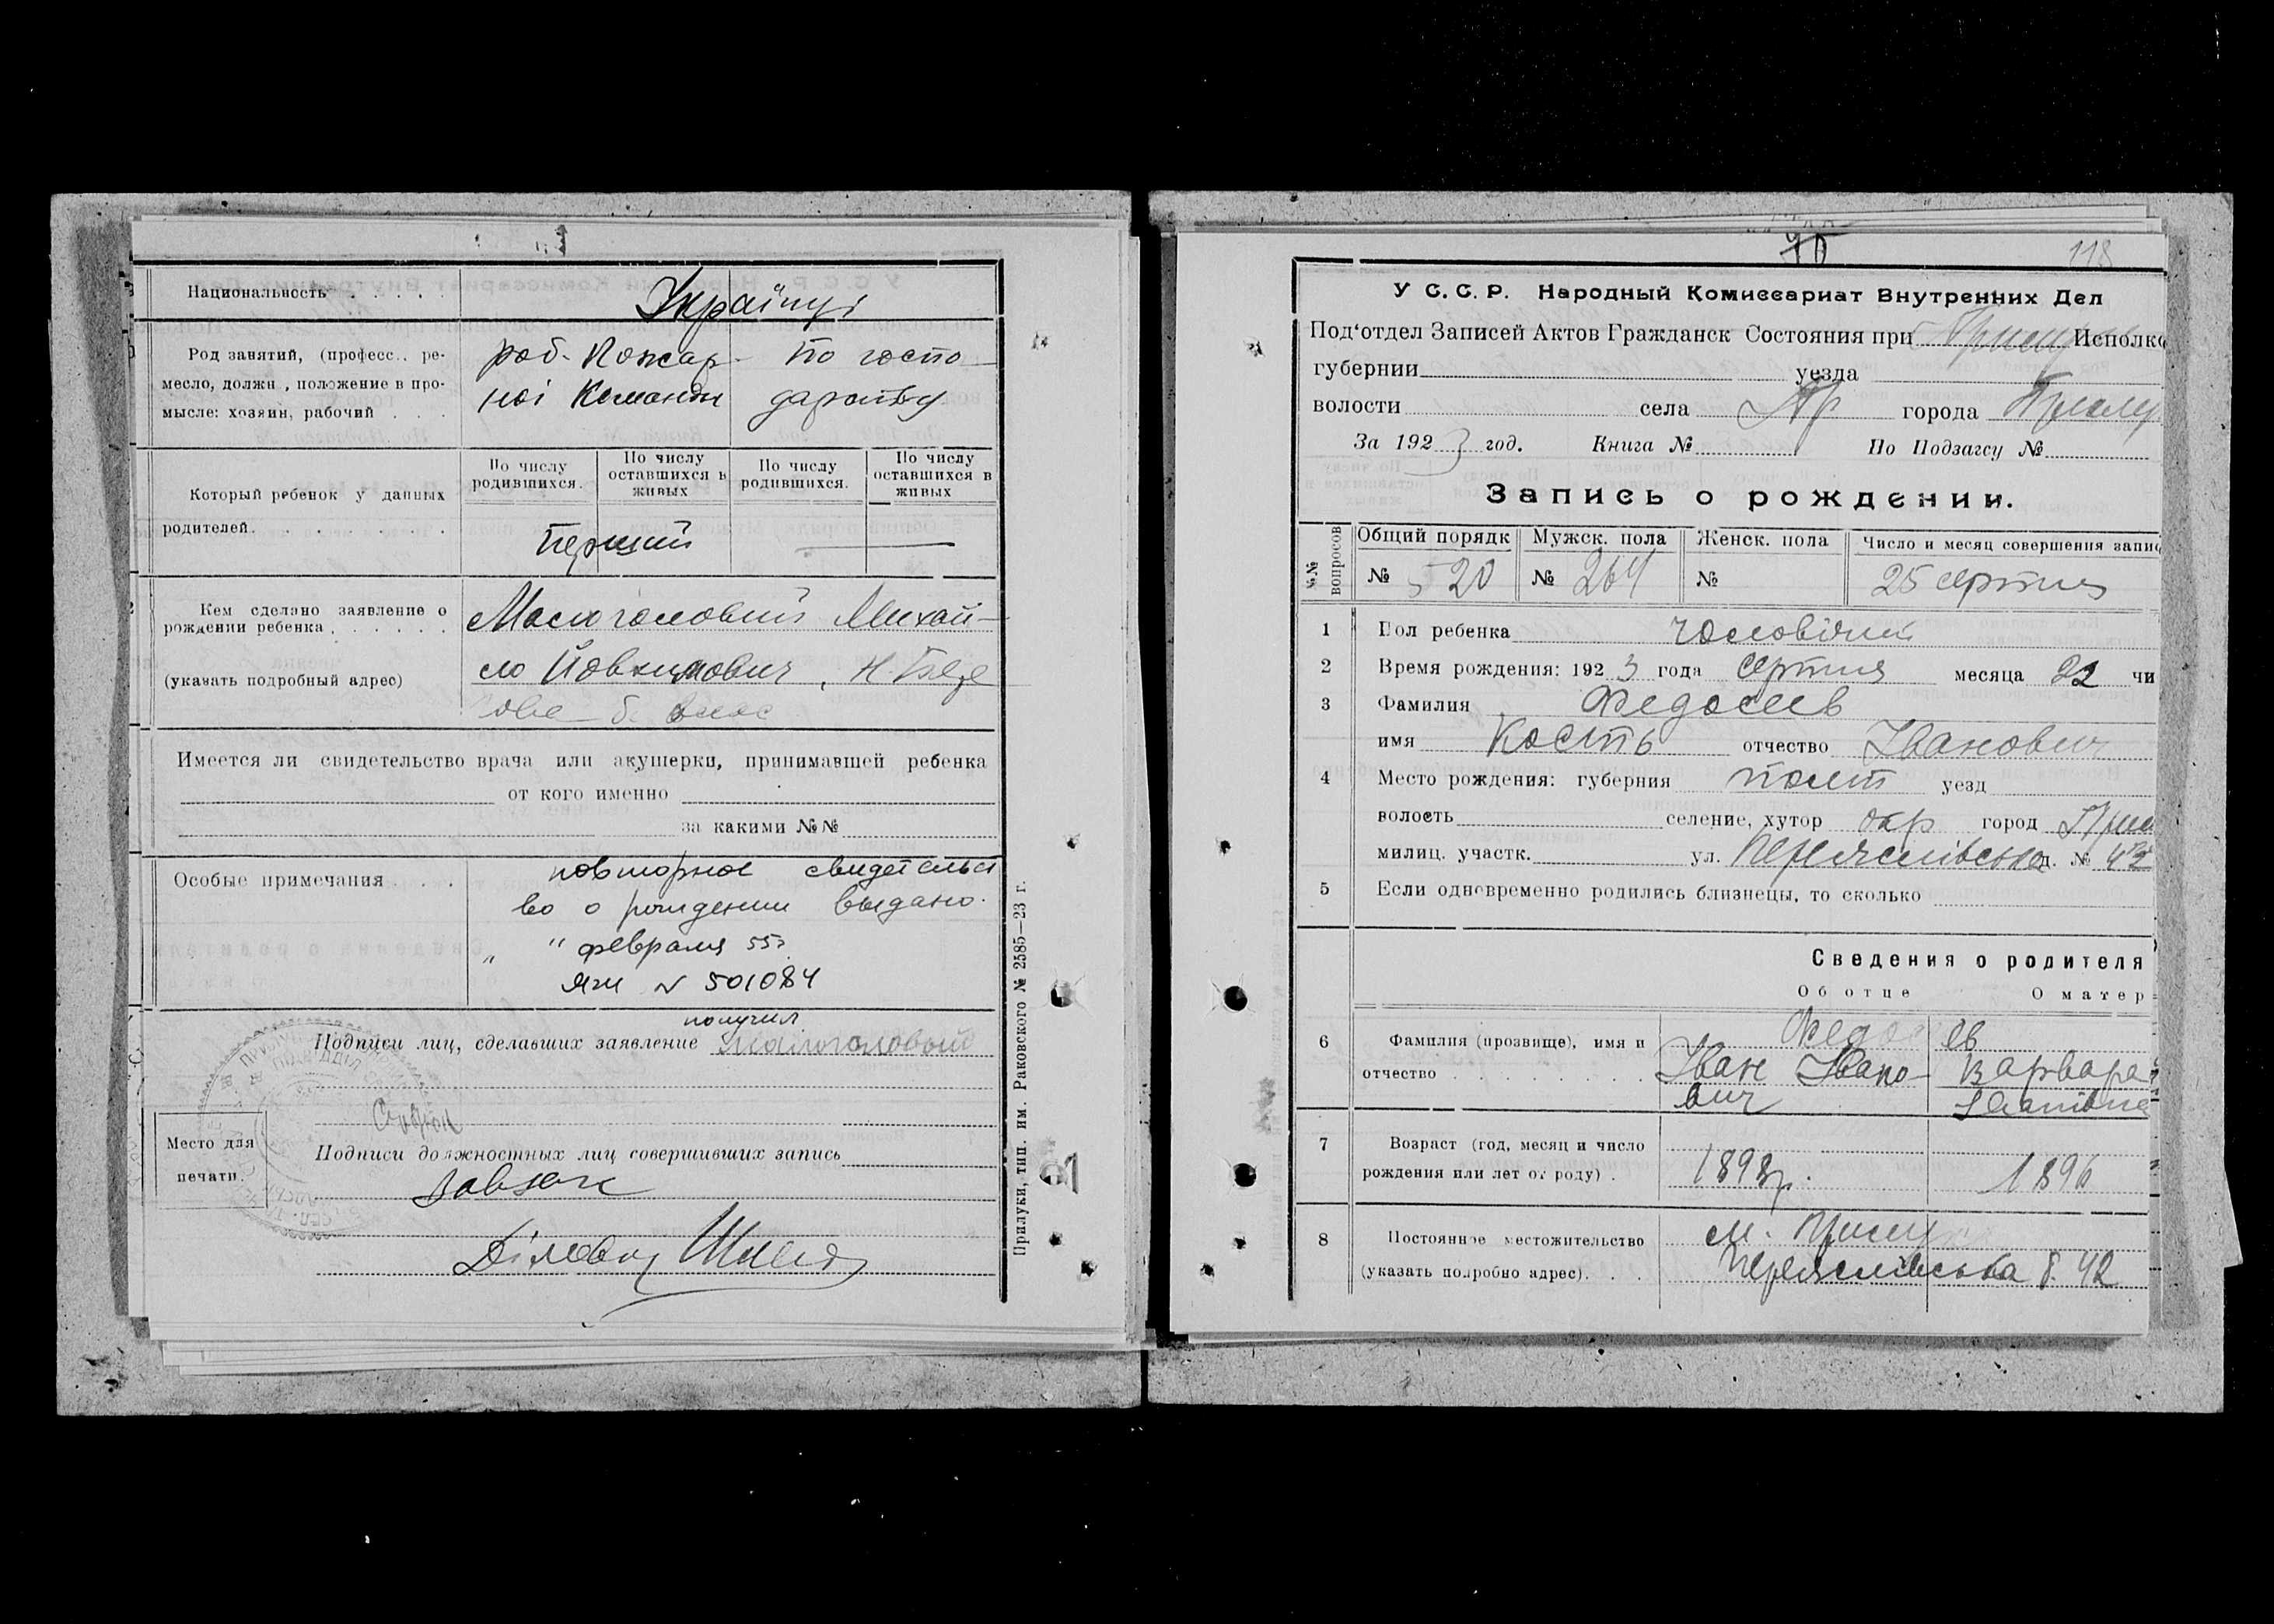 Национальность . . . . . Українці
Род занятий, (професс., ре-
месло, должн., положение в про-
мысле: хозяин, рабочий . . .
роб. Пожар-
ної Команди
По госпо-
дарству
Который ребенок у данных
родителей. . . . . . . .
По числу родившихся.
По числу оставшихся в живых
По числу родившихся.
По числу оставшихся в живых
Перший —
Кем сделано заявление о
рождении ребенка . . . . . .
(указать подробный адрес)
Малоголовий Михай-
ло Йовхимович,
Имеется ли свидетельство врача или акушерки, принимавшей ребенка
от кого именно
за какими №№
Особые примечания . . .
повторное свидетельст
во о рождении выдано.
„ " февраля 55г.
N 501084
получил
Подписи лиц, сделавших заявление Малоголовый
Место для
печати.
Подписи должностных лиц совершивших запись
Завзагс
Діловод
Прилуки, тип. им. Раковского № 2585—23 г.
70
118
У С. С. Р. Народный Комиссариат Внутренних Дел
Под'отдел Записей Актов Гражданск Состояния при Прилу Исполко
губернии уезда
волости села Пр города Прилу
За 1923 год. Книга № По Подзагсу №
Запись о рождении.
№№ вопросов
Общий порядк Мужск. пола Женск. пола Число и месяц совершения запис
№ 520 № 264 № 25 серпня
1 Пол ребенка чоловічий
2 Время рождения: 1923 года серпня месяца 22 чи
3 Фамилия Федосеев
имя Кость отчество Іванович
4 Место рождения: губерния Полт уезд
волость селение, хутор окр город При
милиц. участк. ул. Переяслівська д. № 42
5 Если одновременно родились близнецы, то сколько
Сведения о родителя
Об отце О матер
6 Фамилия (прозвище), имя и
отчество . . . . . . . . .
Федосеев
Іван Івано-
вич
Варвара
7 Возраст (год, месяц и число
рождения или лет от роду) .
1893р. 1896
8 Постоянное местожительство
(указать подробно адрес). . . .
м. Прилу
Переяслівська б. 42